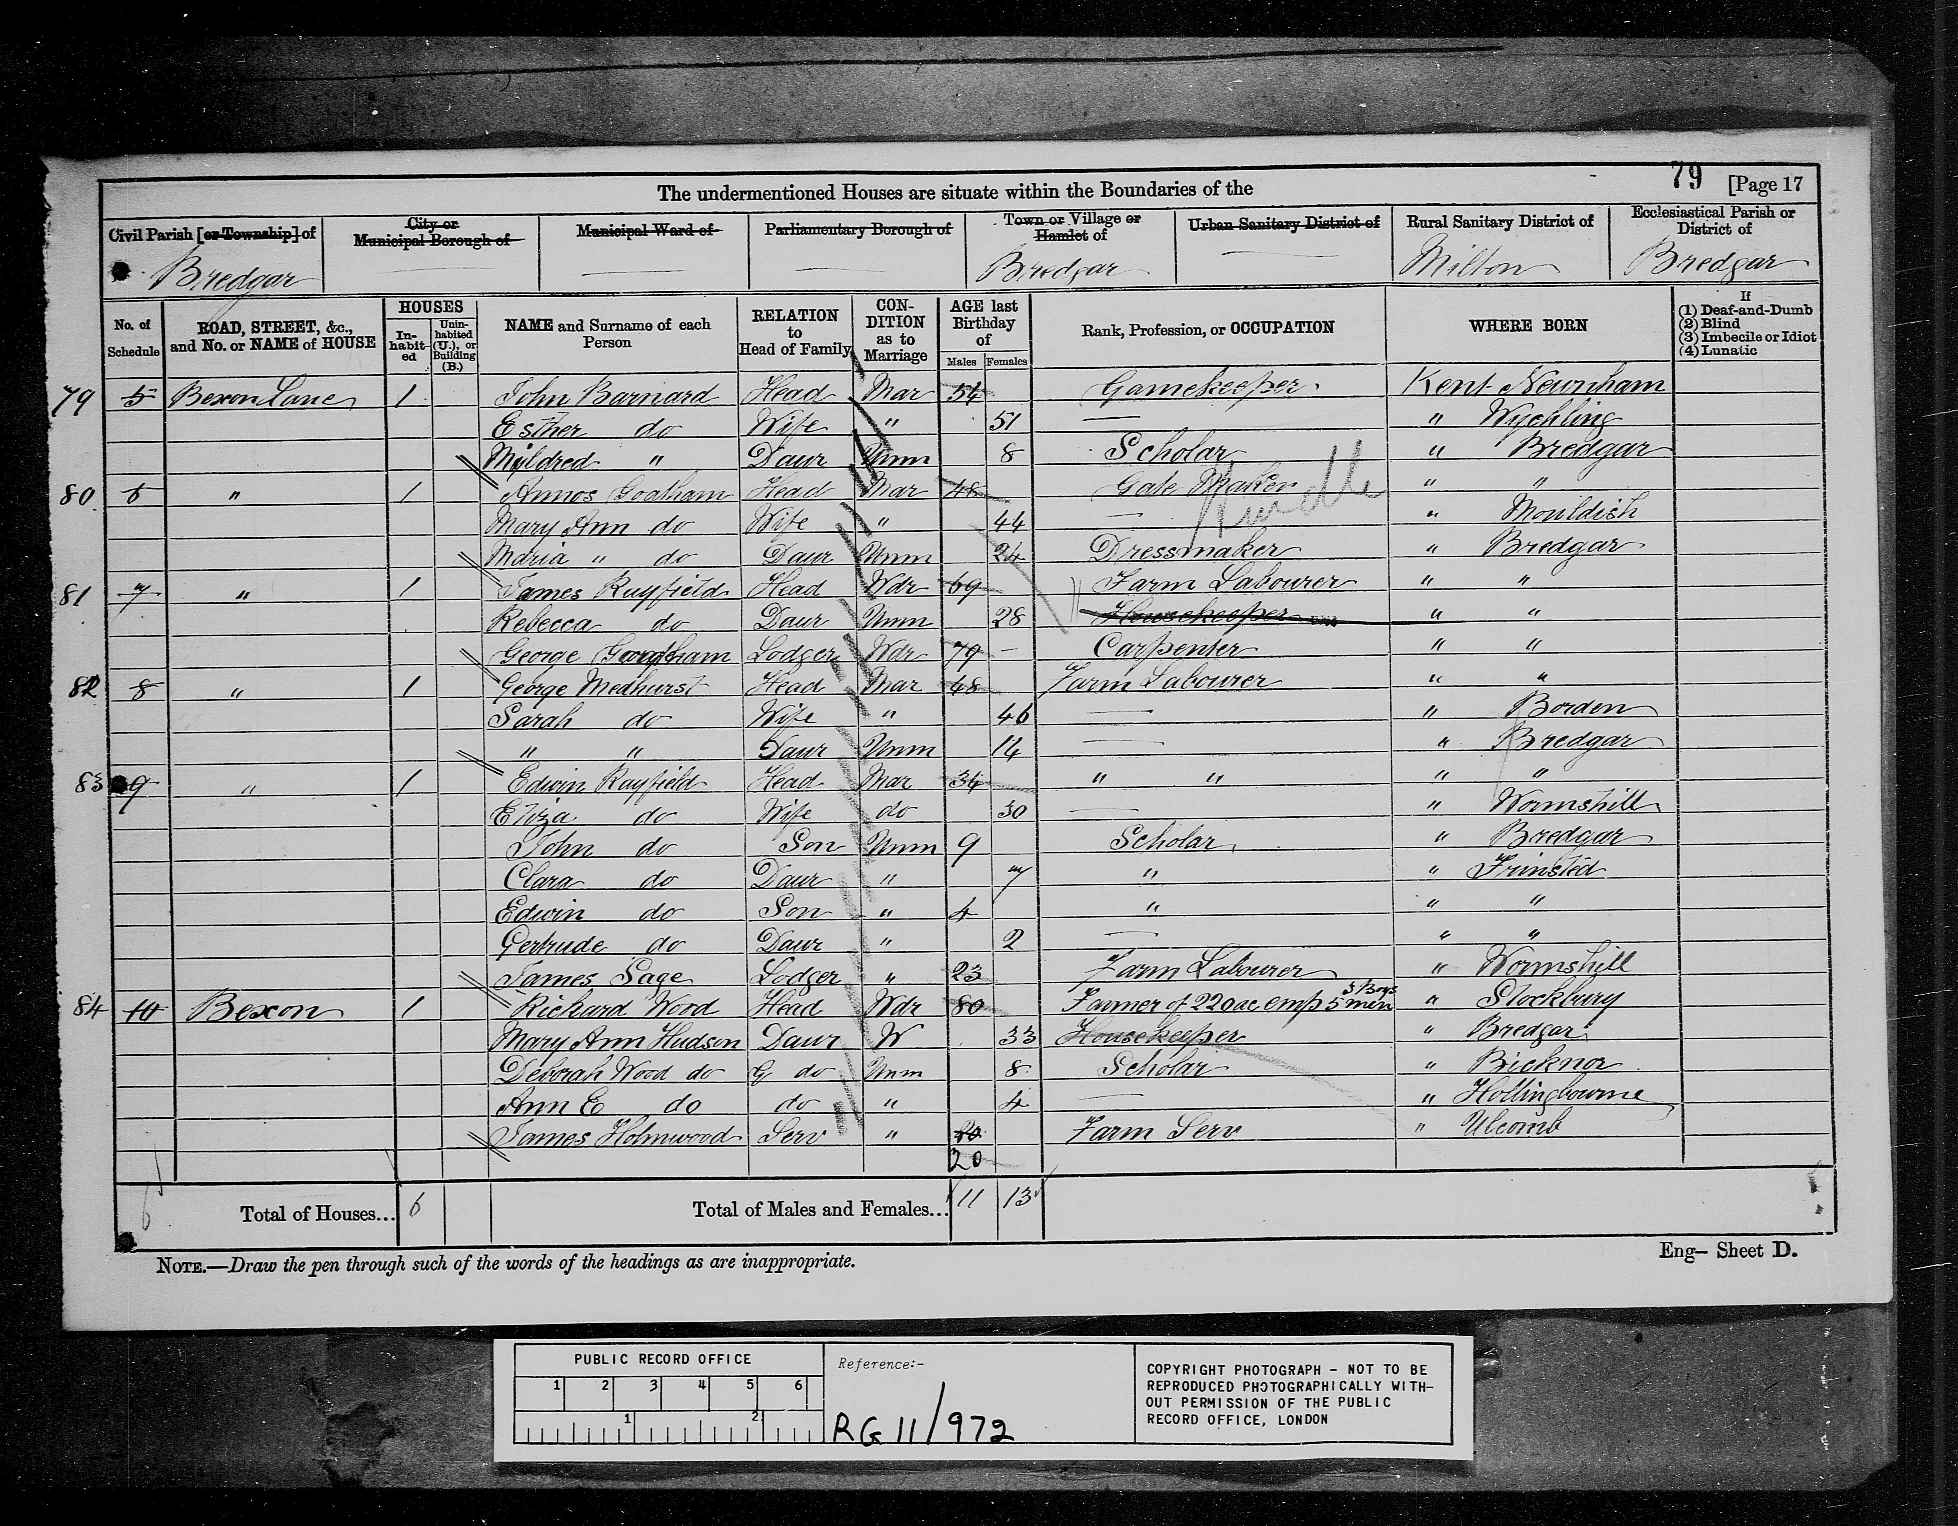 79 [Page 17
The undermentioned Houses are situate within the Boundaries of the
Civil Parish [or Township] of City or Municipal Borough of Municipal Ward of Parliamentary Borough of Town or Village or Hamlet of Urban Sanitary District of Rural Sanitary District of Ecclesiastical Parish or District of
Bredgar Bredgar Milton Bredgar
No. of Schedule ROAD, STREET, &c., and No. or NAME of HOUSE HOUSES In-habit-ed Unin-habited (U.), or Building (B.) NAME and Surname of each Person RELATION to Head of Family CON-DITION as to Marriage AGE last Birthday of Males Females Rank, Profession, or OCCUPATION WHERE BORN If (1) Deaf-and-Dumb (2) Blind (3) Imbecile or Idiot (4) Lunatic
79 5 Bexon Lane 1 John Barnard Head Mar 54 Gamekeeper Kent Newnham
Esther do Wife " 51 — " Wychling
Mildred " Daur Unm 8 Scholar " Bredgar
80 6 " 1 Amos Goatham Head Mar 48 Gate Maker " "
Hurdle
Mary Ann do Wife " 44 — " Mouldish
Maria " do Daur Unm 24 Dressmaker " Bredgar
81 7 " 1 James Rayfield Head Wdr 69 Farm Labourer " "
Rebecca do Daur Unm 28 Housekeeper " "
George Goatham Lodger Wdr 79 – Carpenter " "
82 8 " 1 George Medhurst Head Mar 48 Farm Labourer " "
Sarah do Wife " 46 — " Borden
" " Daur Unm 14 — " Bredgar
83 9 " 1 Edwin Rayfield Head Mar 34 " " " "
Eliza do Wife do 30 — " Wormshill
John do Son Unm 9 Scholar " Bredgar
Clara do Daur " 7 " " Frinsted
Edwin do Son " 4 " " "
Gertrude do Daur " 2 — " "
James Sage Lodger " 23 Farm Labourer " Wormshill
84 10 Bexon 1 Richard Wood Head Wdr 80 Farmer of 220 ac emp 5 men 3 Boys " Stockbury
Mary Ann Hudson Daur W 33 Housekeeper " Bredgar
Deborah Wood do G do Unm 8 Scholar " Bicknor
Ann E do do " 4 — " Hollingbourne
James Holmwood Serv " Farm Serv " Ulcomb
20
6 Total of Houses... 6 Total of Males and Females... 11 13
NOTE.—Draw the pen through such of the words of the headings as are inappropriate. Eng— Sheet D.
PUBLIC RECORD OFFICE
1 2 3 4 5 6
1 2
Reference:-
RG 11/972
COPYRIGHT PHOTOGRAPH - NOT TO BE
REPRODUCED PHOTOGRAPHICALLY WITH-
OUT PERMISSION OF THE PUBLIC
RECORD OFFICE, LONDON